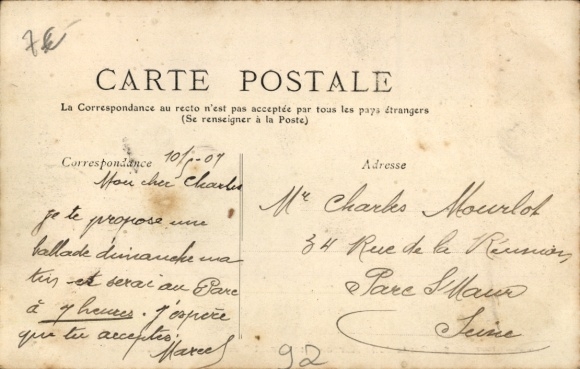 7€
CARTE POSTALE
La Correspondance au recto n'est pas acceptée par tous les pays étrangers
(Se renseigner à la Poste)
Correspondance
Mon cher Charles
je te propose une
ballade dimanche ma
tin et serai au Parc
à 7 heures. J'espère
que tu acceptes.
Marcel
Adresse
Mr Charles Mourlot
34 Rue de la Réunion
Parc St Maur
Seine
92